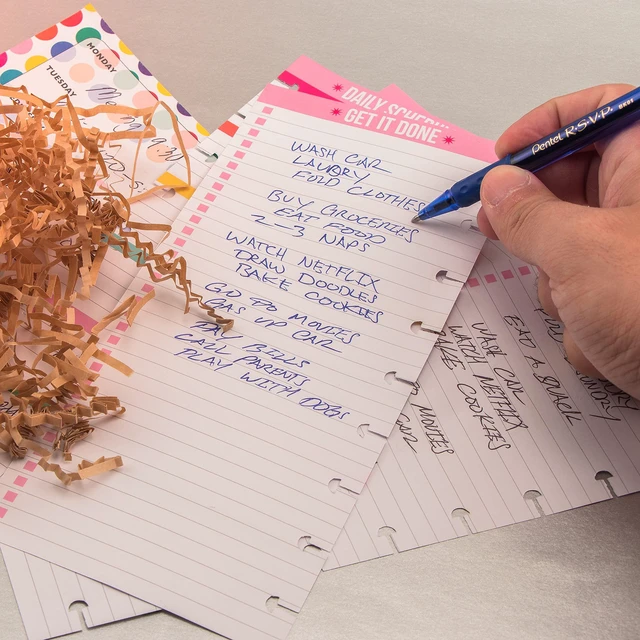 MONDAY
TUESDAY
DAILY
GET IT DONE
WASH CAR
LAUNDRY
FOLD CLOTHES
BUY GROCERIES
EAT FOOD
2-3 NAPS
WATCH NETFLIX
DRAW DOODLES
BAKE COOKIES
GO TO MOVIES
GAS UP CAR
PAY BILLS
CALL PARENTS
PLAY WITH DOGS
Pentel R.S.V.P.
EAT A SNACK
WASH CAR
WATCH NETFLIX
COOKIES
MOVIES